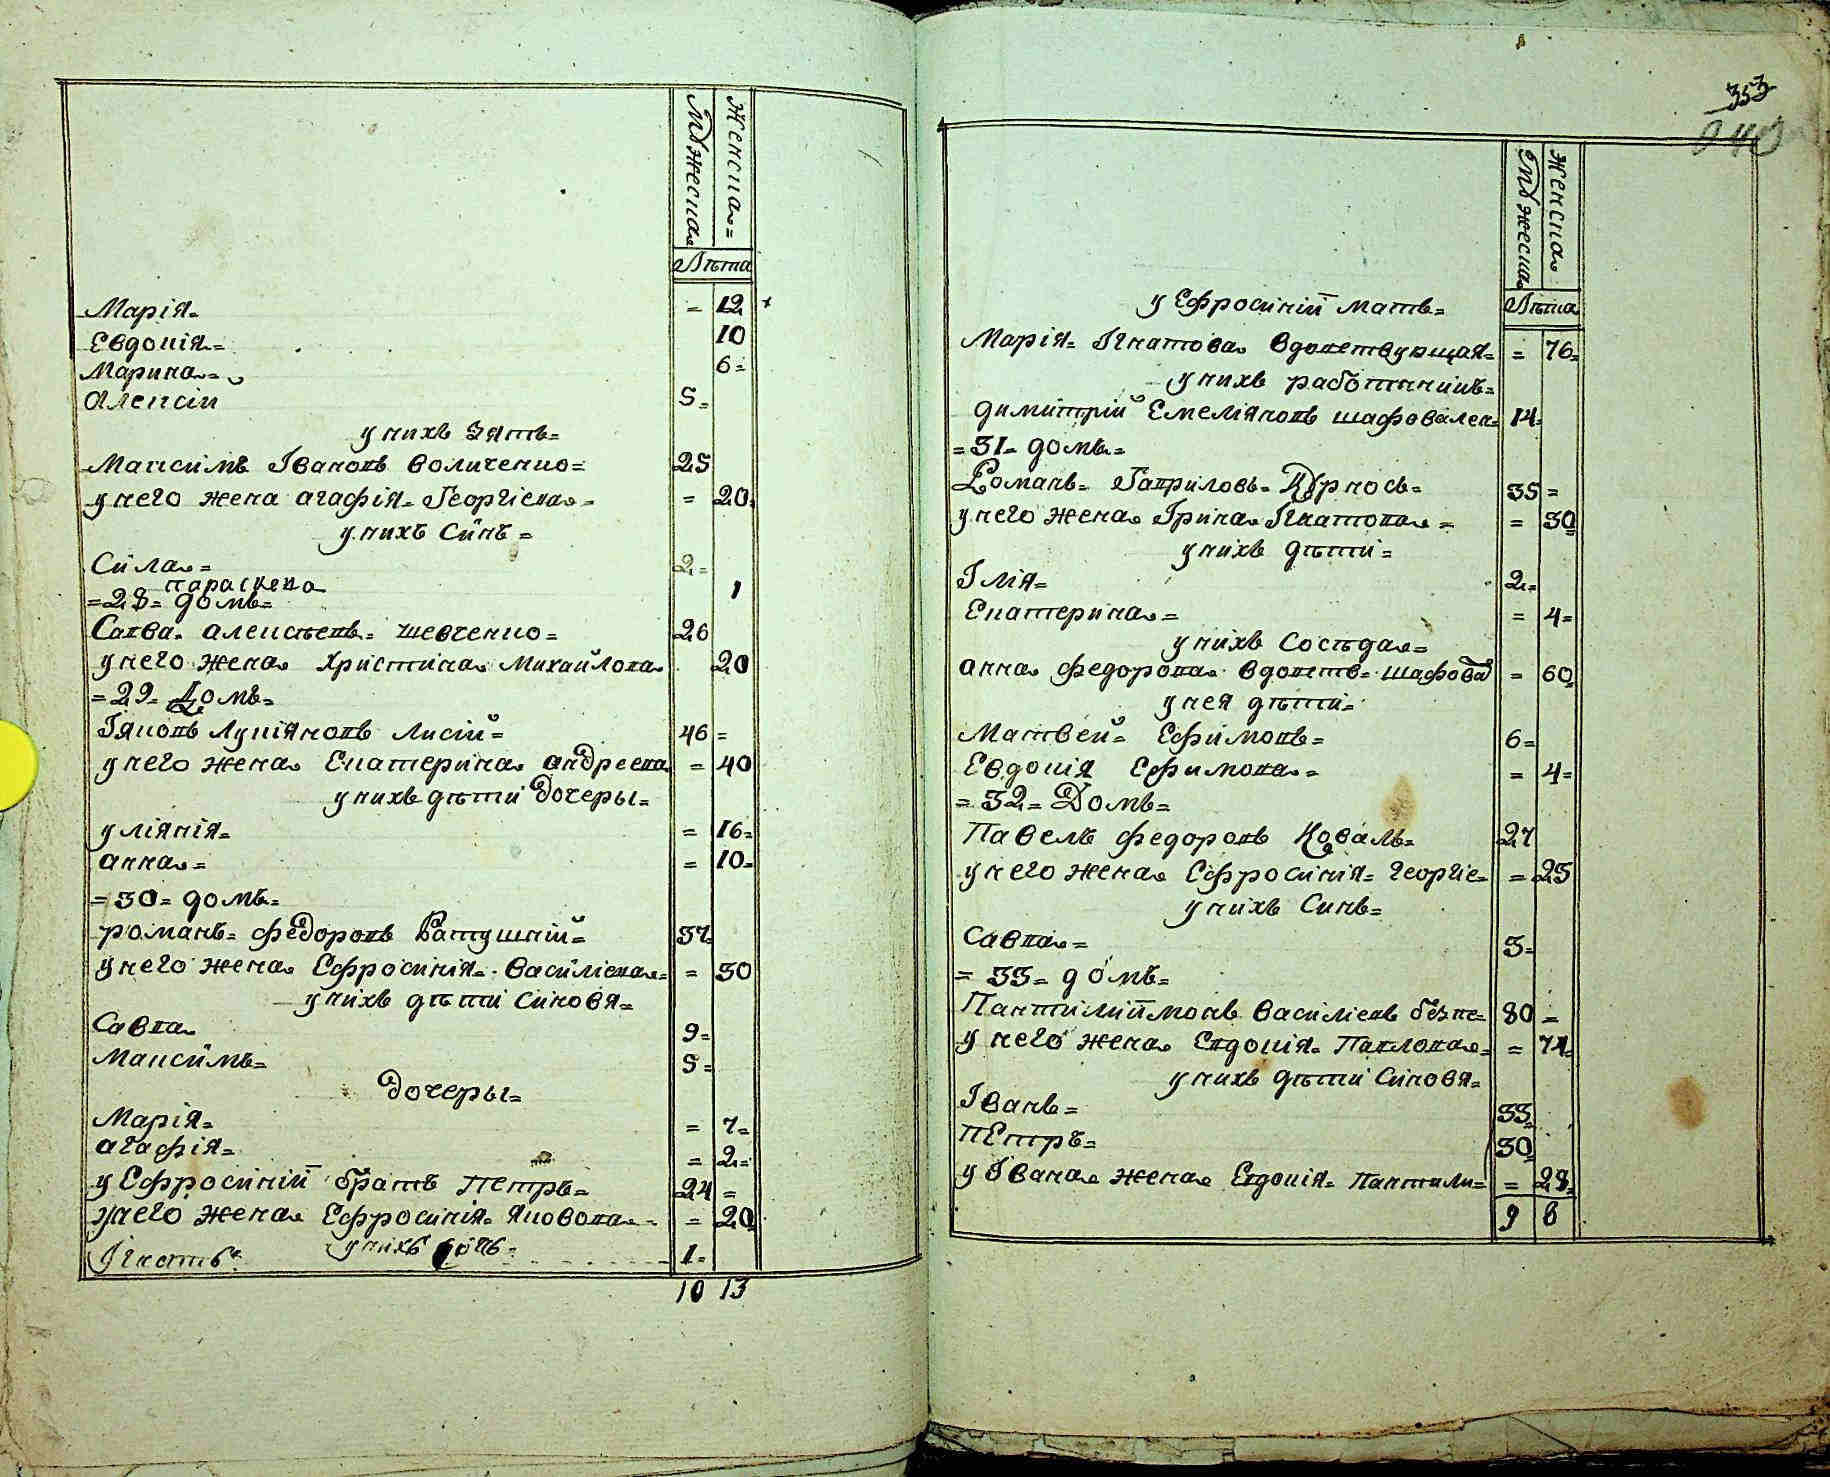 Мужеска
Женска=
Лѣта
Марія= = 12
Евдокія= 10
Марина= 6=
Алексіи 5=
у нихъ зять=
Максимъ ІвановъВоличенко= 25
у него жена агафія= Георгіева= = 20
у нихъ Синъ=
Сила= 2=
параскева 1
=28= домъ=
Савва= алексѣевъ= шевченко= 26
у него жена Христина Михайлова 20
=29= Домъ=
Іяковъ Лукіяновъ Лисій= 46 =
у него жена Екатерина андреева = 40
у нихъ дѣти дочеры=
уліянія= = 16=
анна= = 10=
=30= домъ=
романъ= федоровъ Ратушній= 37=
у него жена Ефросинія= Василіева= = 30
у нихъ дѣти Синовя=
Савва 9=
Максимъ= 5=
дочеры=
Марія= = 7=
агафія= = 2=
у Ефросиніи братъ Петръ= 24 =
у него жена Ефросинія= яковова= = 20
у нихъ
Ігнатъ 1=
10 13
353
Мужеска
Женска
Лѣта
у Ефросиніи мать=
Марія= Ігнатова вдовствующая= = 76=
у нихъ работникъ=
димитрій Емеліяновъ шафовален= 14=
=31= домъ=
Романъ= Гавриловъ= Курносъ= 35 =
у него жена Ірина Ігнатова= = 30
у нихъ дѣти=
Ілія= 2=
Екатерина= = 4=
у нихъ Сосѣда=
анна федорова вдовств= шафова = 60
у нея дѣти=
Матвей= Ефимовъ= 6=
Евдокія Ефимова= = 4=
=32= Домъ=
Павелъ федоровъ Коваль= 27
у него жена Ефросинія= Георгіе= = 25
у нихъ Синъ=
Савва= 3=
=33= домъ=
Пантилиімонъ Василіевъ безпе= 80 =
у него жена Евдокія= Павлова= = 74=
у нихъ дѣти Синовя=
Іванъ= 33
Петръ= 30
у Івана жена Евдокія= Пантили= = 28=
9 8